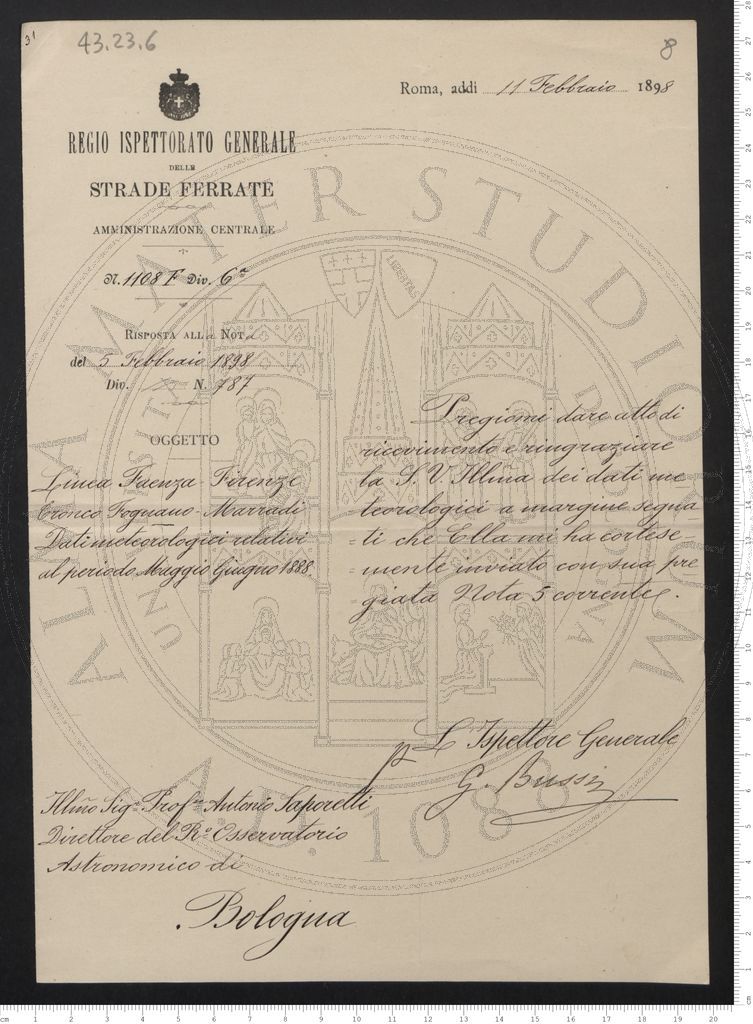 31
43.23.6
8
Roma, addi 11 Febbraio 1898
REGIO ISPETTORATO GENERALE
DELLE
STRADE FERRATE
AMMINISTRAZIONE CENTRALE
N. 1108 F Div. 6ª
RISPOSTA ALLa NOTa
del 5 Febbraio 1898
Div. N. 787
OGGETTO
Linea Faenza-Firenze
Tronco Fognano-Marradi
Dati meteorologici relativi
al periodo Maggio Giugno 1888.
Pregiomi dare atto di
ricevimento e ringraziare
la S. V. Illma dei dati me
teorologici a margine segna
ti che Ella mi ha cortese-
mente inviato con sua pre
giata Nota 5 corrente.
p L'Ispettore Generale
Illmo Sigr Profre Antonio Saporetti
Direttore del Ro Osservatorio
Astronomico di
Bologna
ALMA MATER STUDIORUM
A.D. 1088
LIBERTAS